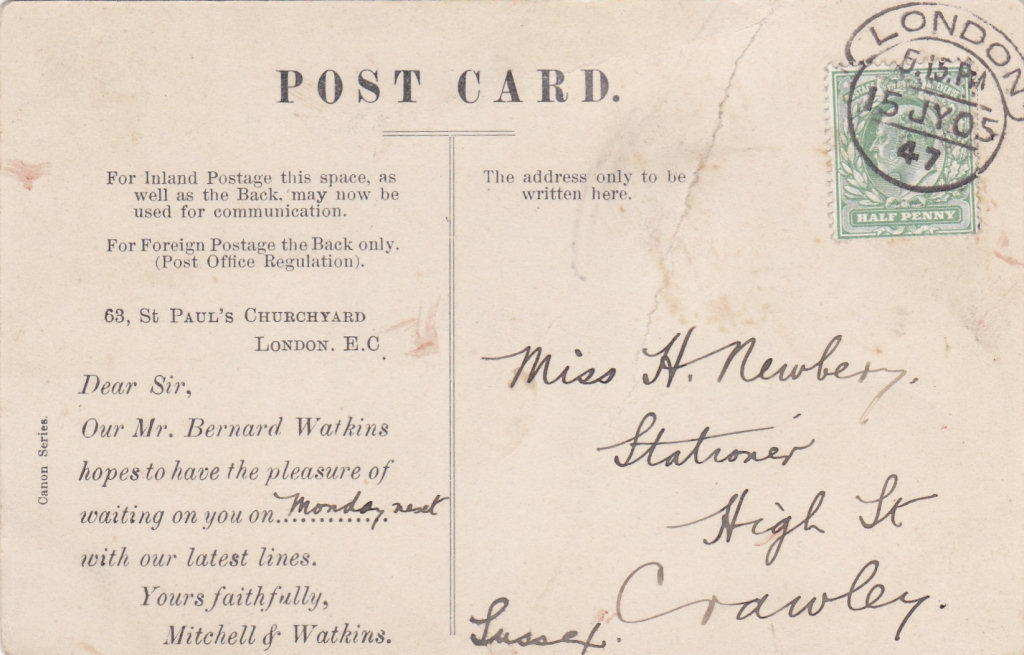 POST CARD.
For Inland Postage this space, as
well as the Back, may now be
used for communication.
For Foreign Postage the Back only.
(Post Office Regulation).
63, St Paul's Churchyard
London. E.C
Dear Sir,
Our Mr. Bernard Watkins
hopes to have the pleasure of
waiting on you on.... Monday next
with our latest lines.
Yours faithfully,
Mitchell & Watkins.
Canon Series.
The address only to be
written here.
LONDON
5.15.PM
15 JY 05
47
HALF PENNY
Miss H. Newbery.
Stationer
High St
Crawley.
Sussex.